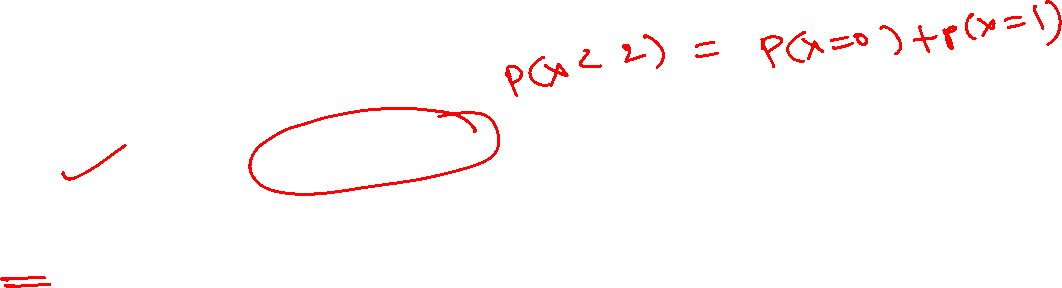 P(x < 2) = P(x=0)+P(x=1)